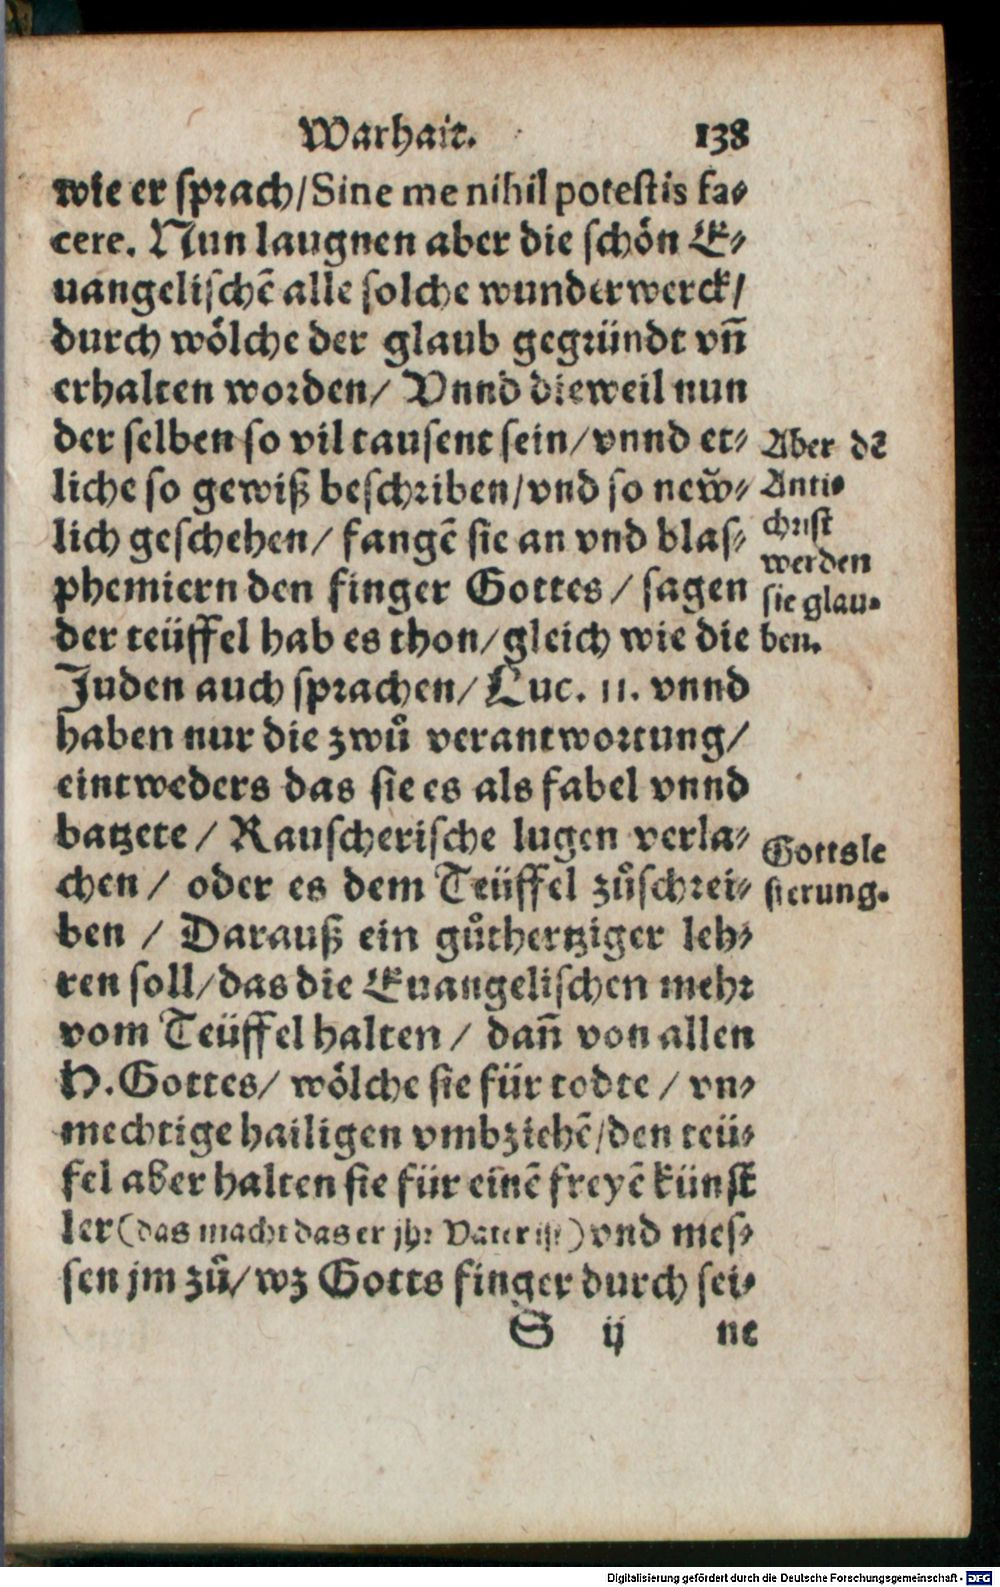 Warhait. 138
wie er sprach/Sine me nihil potestis fa⸗
cere. Nun laugnen aber die schön E⸗
uangelischē alle solche wunderwerck/
durch wölche der glaub gegründt vn̄
erhalten worden/ Vnnd dieweil nun
der selben so vil tausent sein/vnnd et⸗
liche so gewiß beschriben/vnd so new̃⸗
lich geschehen/ fangē sie an vnd blas⸗
phemiern den finger Gottes / sagen
der teüffel hab es thon/gleich wie die
Juden auch sprachen/ Luc. 11. vnnd
haben nur die zwů verantwortung/
eintweders das sie es als fabel vnnd
batzete / Rauscherische lugen verla⸗
chen / oder es dem Teüffel zůschrei⸗
ben / Darauß ein gůthertziger leh⸗
ren soll/das die Euangelischen mehr
vom Teüffel halten / dan̄ von allen
H. Gottes/ wölche sie für todte / vn⸗
mechtige hailigen vmbziehē/den teü⸗
fel aber halten sie für einē freyē künst
ler (das macht das er jhr Vater ist) vnd mes⸗
sen jm zů/wz Gotts finger durch sei⸗
S ij ne
Aber dē
Anti⸗
christ
werden
sie glau⸗
ben.
Gottsle
sierung.
Digitalisierung gefördert durch die Deutsche Forschungsgemeinschaft - DFG